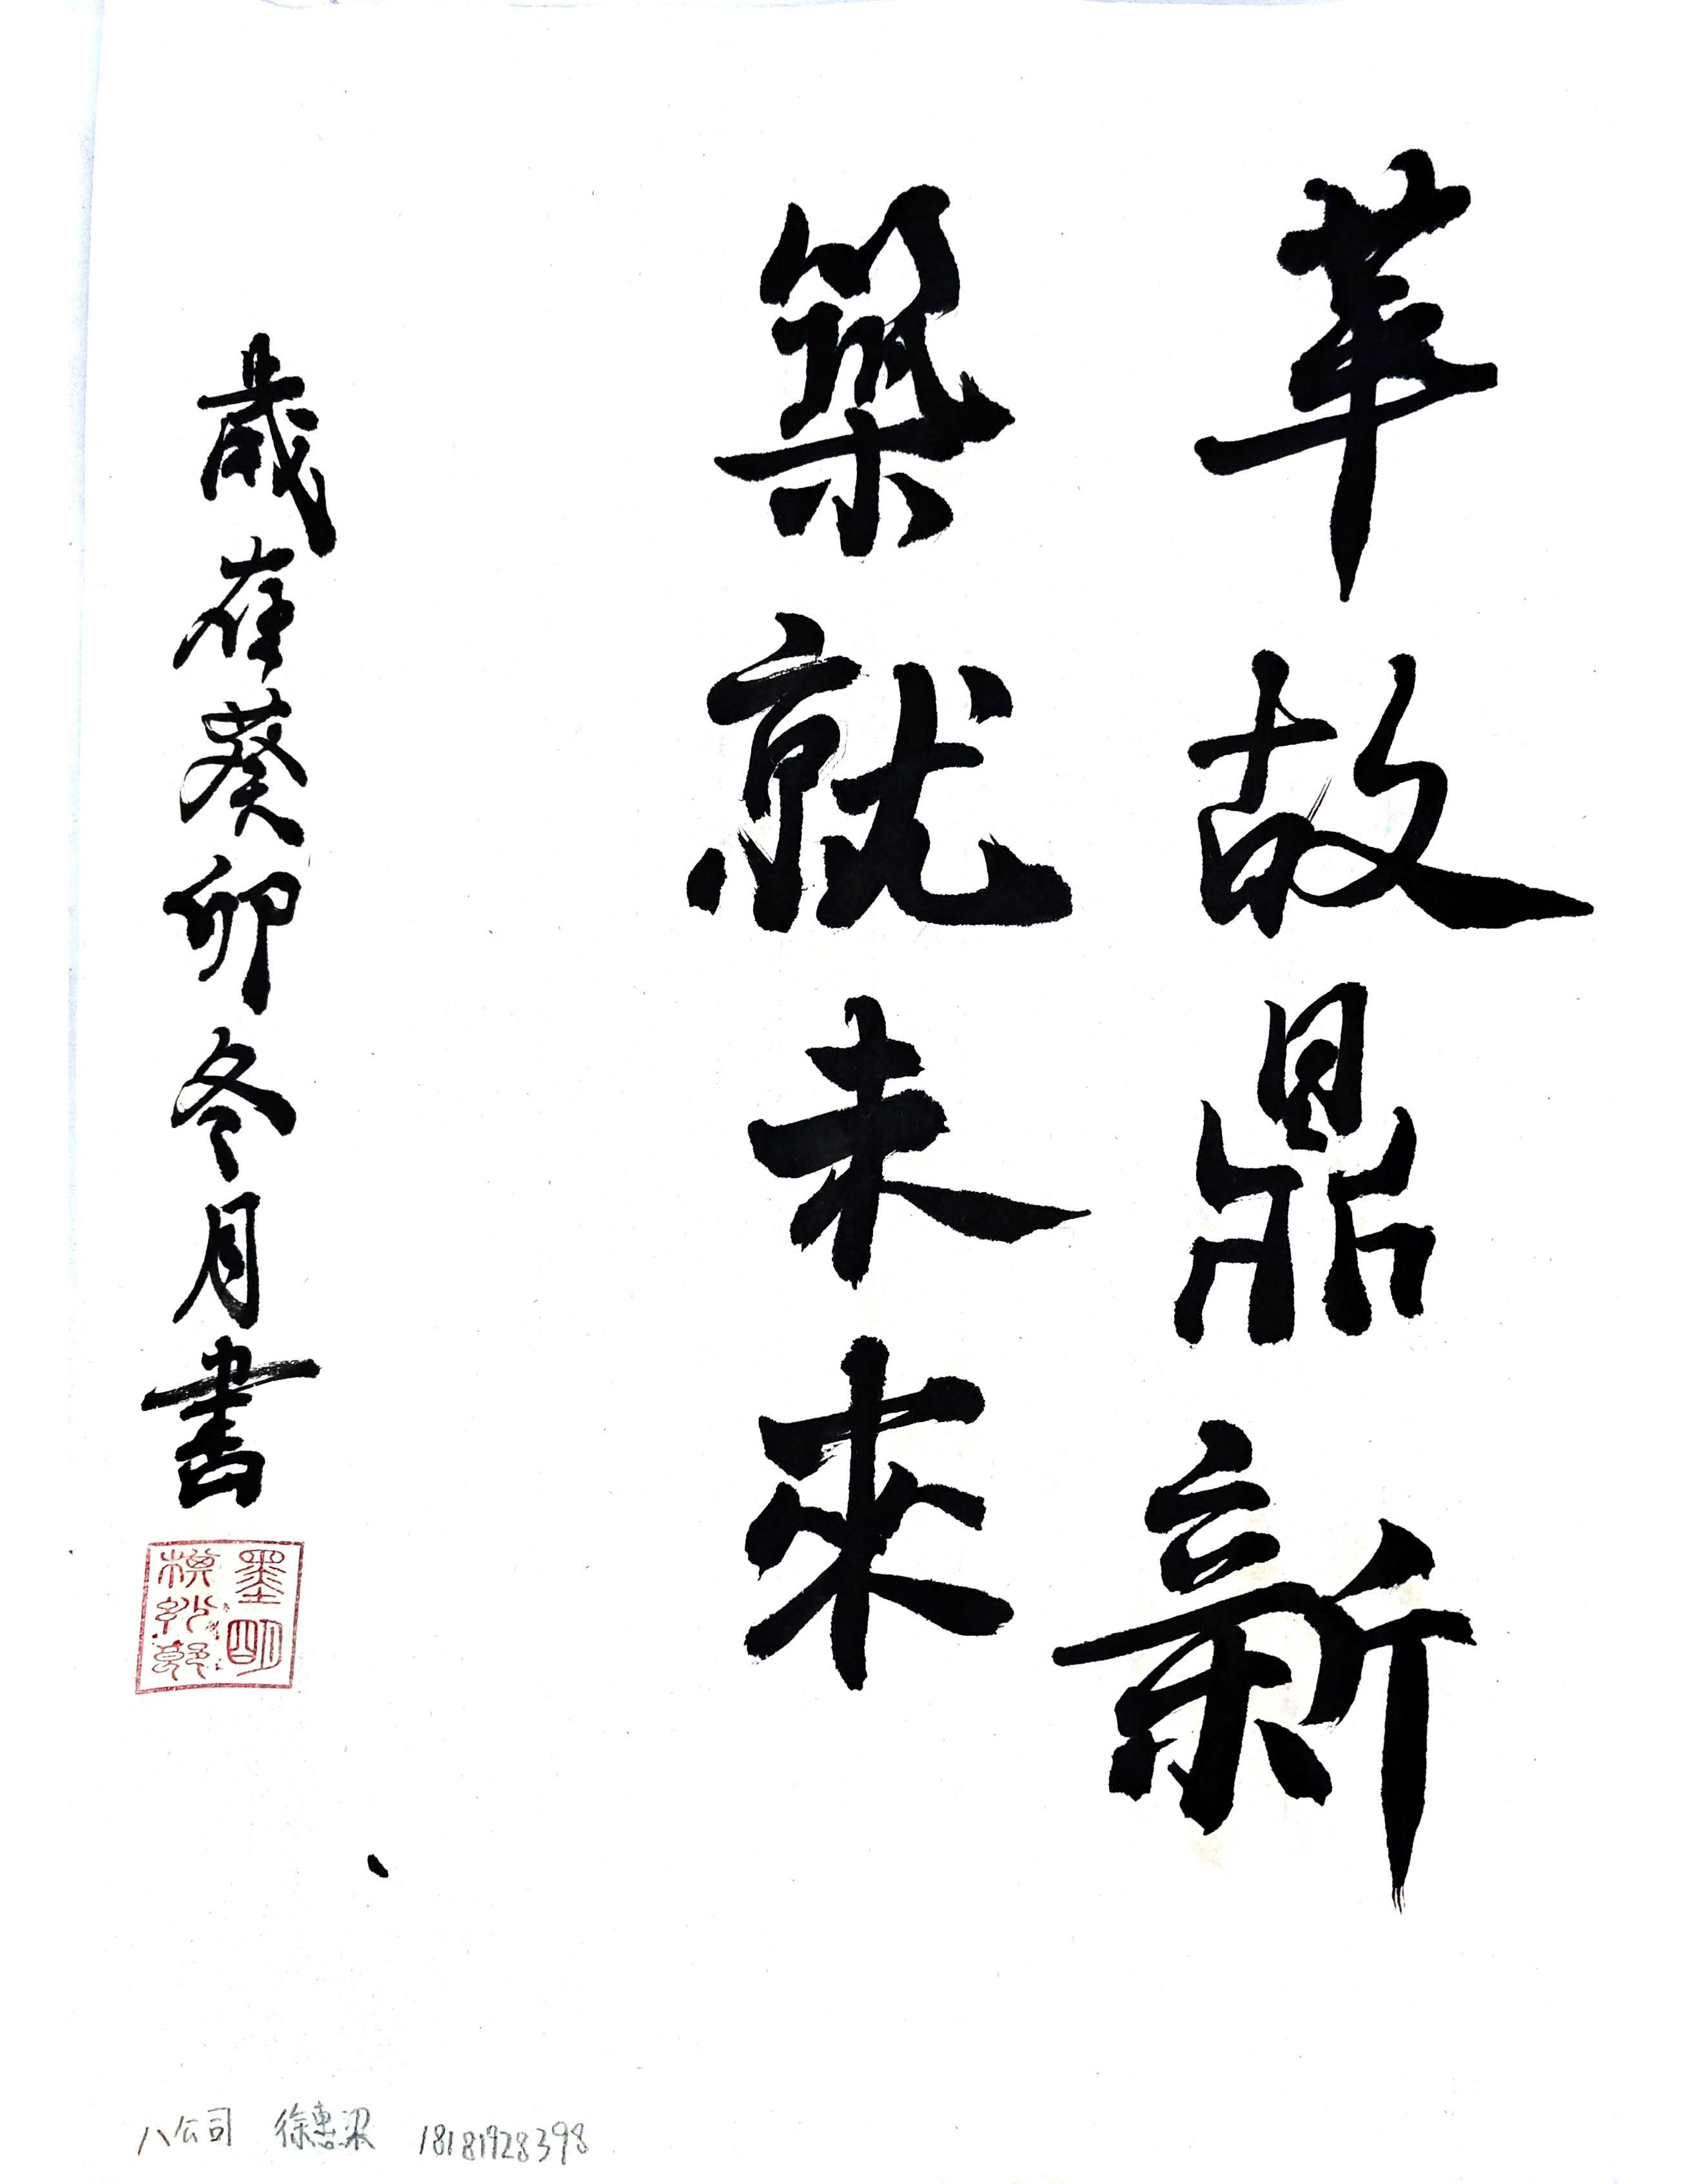 革故鼎新
築就未來
歲在癸卯冬月書
八公司 徐惠梁 18181928398